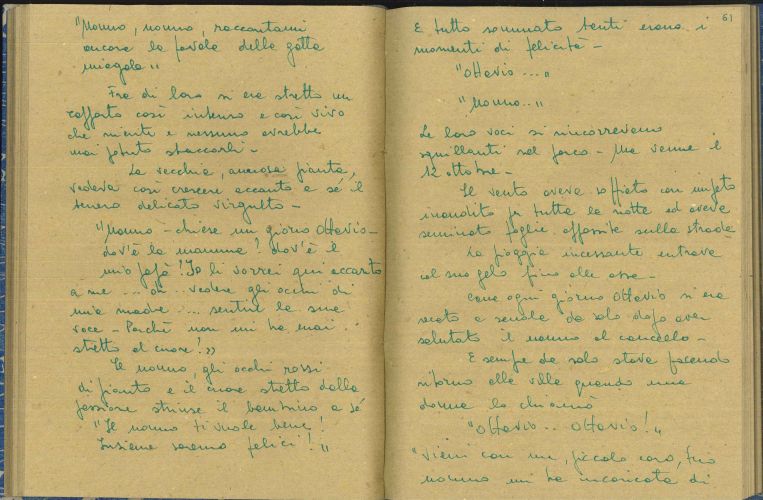 "Nonno, nonno, raccontami
ancora la favola della gatta
miagola"
Fra di loro si era stretto un
rapporto così intenso e così vivo
che niente e nessuno avrebbe
mai potuto staccarli -
La vecchia, ancora pianta,
vedeva così crescere accanto a sé il
tenero delicato virgulto -
"Nonno - chiese un giorno Ottavio -
dov'è la mamma? dov'è il
mio papà? Io li vorrei qui accanto
a me ... vedere gli occhi di
mia madre ... sentire la sua
voce - Perché non mi ha mai
stretto al cuore?"
Il nonno, gli occhi rossi
di pianto e il cuore stretto dalla
passione strinse il bambino a sé
"Il nonno ti vuole bene!
Insieme saremo felici!"
61
E tutto sommato tanti erano i
momenti di felicità -
"Ottavio ..."
"Nonno .."
Le loro voci si rincorrevano
squillanti nel parco - Ma venne il
12 ottobre -
Il vento aveva soffiato con impeto
inaudito per tutta la notte ed aveva
seminato foglie appassite sulla strada
La pioggia incessante entrava
col suo gelo fino alle ossa -
Come ogni giorno Ottavio si era
recato a scuola da solo dopo aver
salutato il nonno al cancello -
E sempre da solo stava facendo
ritorno alla villa quando una
donna lo chiamò
"Ottavio .. Ottavio!"
"Vieni con me, piccolo caro, tuo
nonno mi ha incaricata di